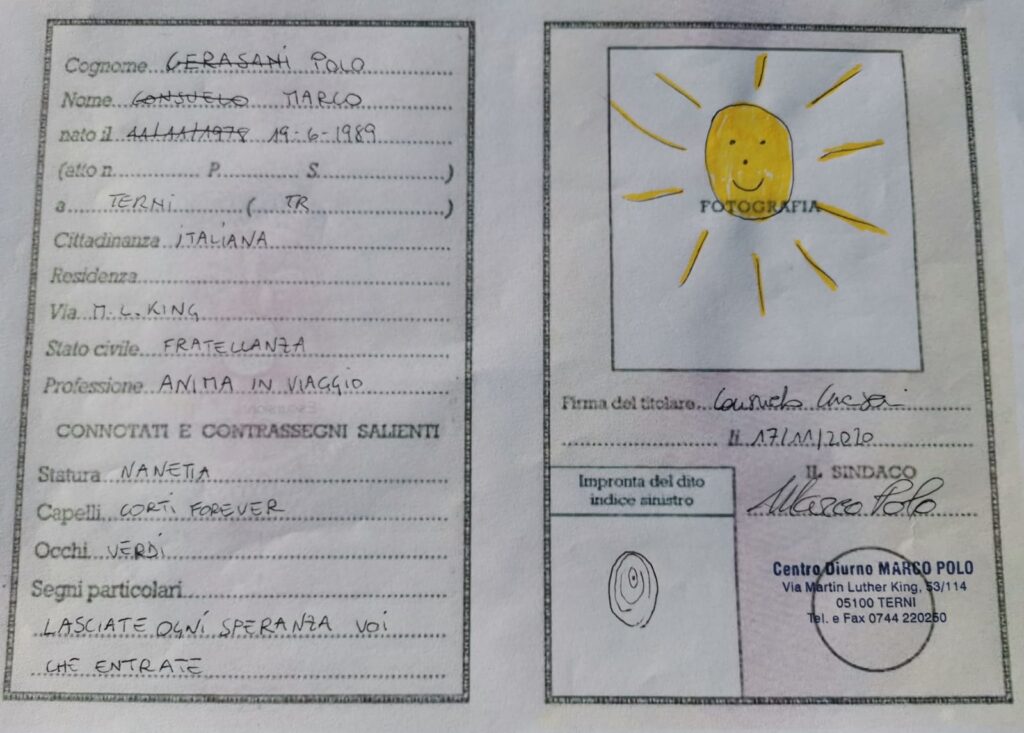 Cognome GERASANI POLO
Nome CONSUELO MARCO
nato il 11/11/1978 19-6-1989
(atto n. P. S. )
a TERNI ( TR )
Cittadinanza ITALIANA
Residenza
Via M. L. KING
Stato civile FRATELLANZA
Professione ANIMA IN VIAGGIO
CONNOTATI E CONTRASSEGNI SALIENTI
Statura NANETTA
Capelli CORTI FOREVER
Occhi VERDI
Segni particolari
LASCIATE OGNI SPERANZA VOI
CHE ENTRATE
FOTOGRAFIA
Firma del titolare Consuelo
li 17/11/2020
IL SINDACO
Marco Polo
Impronta del dito
indice sinistro
Centro Diurno MARCO POLO
Via Martin Luther King, 53/114
05100 TERNI
Tel. e Fax 0744 220250